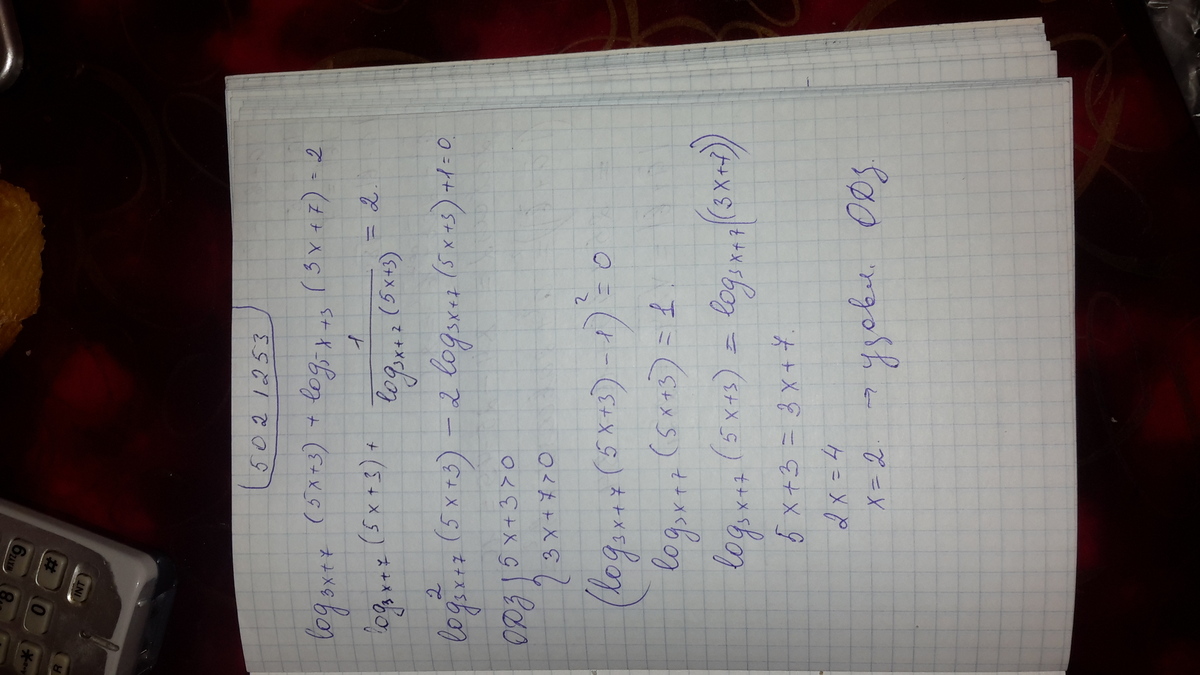 5021253
log₃ₓ₊₇ (5x+3) + log₅ₓ₊₃ (3x+7) = 2
log₃ₓ₊₇ (5x+3) + 1/log₃ₓ₊₇ (5x+3) = 2.
log²₃ₓ₊₇ (5x+3) − 2 log₃ₓ₊₇ (5x+3) + 1 = 0.
ОДЗ { 5x+3>0
3x+7>0
(log₃ₓ₊₇ (5x+3) − 1)² = 0
log₃ₓ₊₇ (5x+3) = 1.
log₃ₓ₊₇ (5x+3) = log₃ₓ₊₇ (3x+7))
5x+3 = 3x+7.
2x=4
x=2. → удовл. ОДЗ.
9
8
#
0
*
INT
R